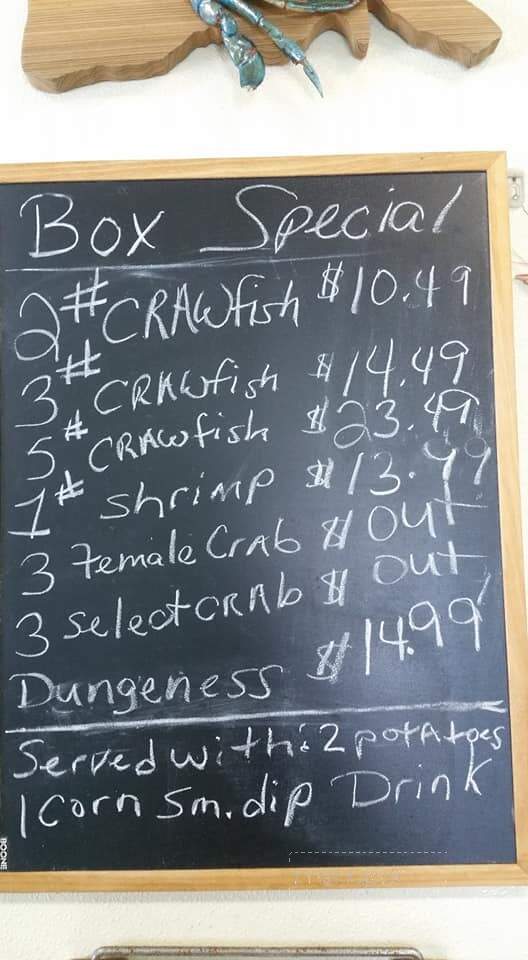 Box Special
2# CRAWfish $10.49
3# CRAWfish $14.49
5# CRAWfish $23.49
1# shrimp $13.49
3 Female CrAb $ OUT
3 select CRAb $ OUT
Dungeness $14.99
Served with: 2 potAtoes
1 Corn Sm. dip Drink
BOONE